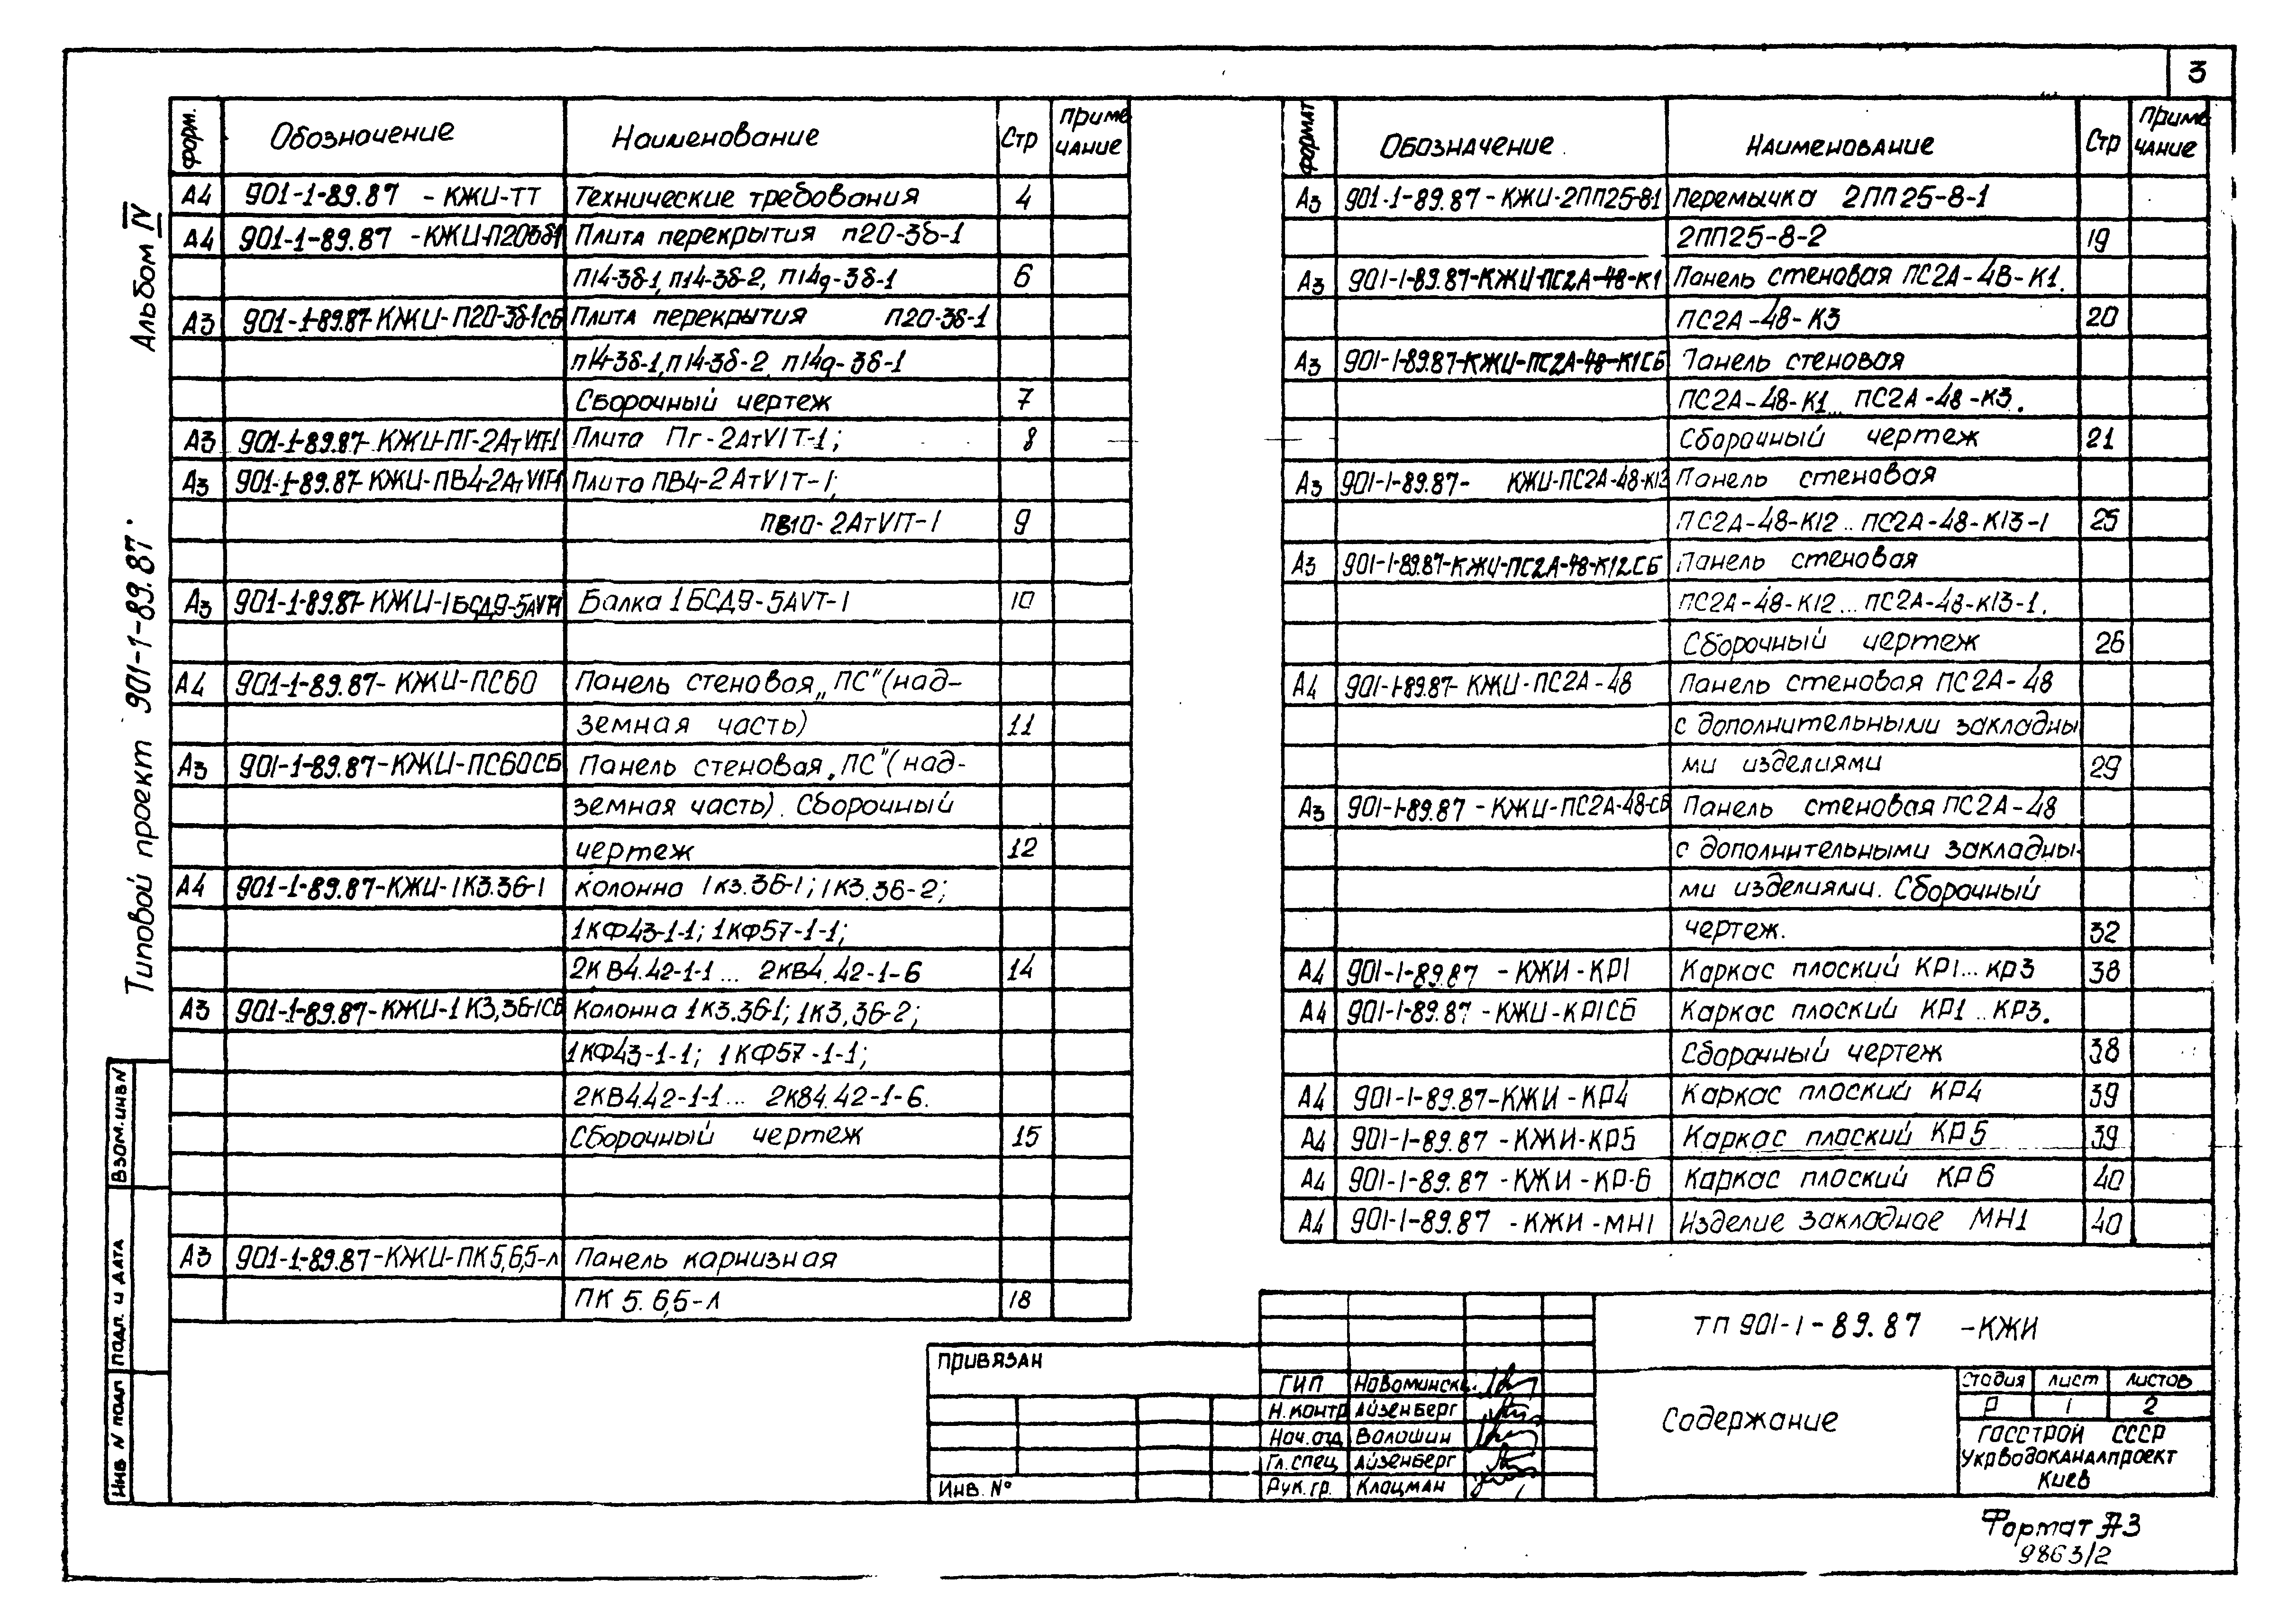 3
Альбом IV
Типовой проект 901-1-89.87.
Форм. Обозначение Наименование Стр Приме чание
А4 901-1-89.87 -КЖИ-ТТ Технические требования 4
А4 901-1-89.87 -КЖИ-П20-3б-1 Плита перекрытия П20-3б-1
П14-3б-1, П14-3б-2, П14д-3б-1 6
А3 901-1-89.87-КЖИ-П20-3б-1СБ Плита перекрытия П20-3б-1
П14-3б-1, П14-3б-2, П14д-3б-1
Сборочный чертеж 7
А3 901-1-89.87-КЖИ-ПГ-2АтVIТ-1 Плита ПГ-2АтVIТ-1; 8
А3 901-1-89.87-КЖИ-ПВ4-2АтVIТ-1 Плита ПВ4-2АтVIТ-1;
ПВ10-2АтVIТ-1 9
А3 901-1-89.87-КЖИ-1БСД9-5АVТ-1 Балка 1БСД9-5АVТ-1 10
А4 901-1-89.87-КЖИ-ПС60 Панель стеновая „ПС" (над-
земная часть) 11
А3 901-1-89.87-КЖИ-ПС60СБ Панель стеновая „ПС" (над-
земная часть). Сборочный
чертеж 12
А4 901-1-89.87-КЖИ-1К3.36-1 Колонна 1К3.36-1; 1К3.36-2;
1КФ43-1-1; 1КФ57-1-1;
2КВ4.42-1-1... 2КВ4.42-1-6 14
А3 901-1-89.87-КЖИ-1К3,36-1СБ Колонна 1К3.36-1; 1К3,36-2;
1КФ43-1-1; 1КФ57-1-1;
2КВ4.42-1-1... 2КВ4.42-1-6.
Сборочный чертеж 15
А3 901-1-89.87-КЖИ-ПК5,6,5-Л Панель карнизная
ПК 5.6,5-Л 18
Формат Обозначение Наименование Стр Приме чание
А3 901-1-89.87-КЖИ-2ПП25-8-1 Перемычка 2ПП25-8-1
2ПП25-8-2 19
А3 901-1-89.87-КЖИ-ПС2А-48-К1 Панель стеновая ПС2А-48-К1.
ПС2А-48-К3 20
А3 901-1-89.87-КЖИ-ПС2А-48-К1СБ Панель стеновая
ПС2А-48-К1... ПС2А-48-К3.
Сборочный чертеж 21
А3 901-1-89.87- КЖИ-ПС2А-48-К12 Панель стеновая
ПС2А-48-К12... ПС2А-48-К13-1 25
А3 901-1-89.87-КЖИ-ПС2А-48-К12СБ Панель стеновая
ПС2А-48-К12... ПС2А-48-К13-1.
Сборочный чертеж 26
А4 901-1-89.87-КЖИ-ПС2А-48 Панель стеновая ПС2А-48
с дополнительными закладны
ми изделиями 29
А3 901-1-89.87-КЖИ-ПС2А-48-СБ Панель стеновая ПС2А-48
с дополнительными закладны-
ми изделиями. Сборочный
чертеж. 32
А4 901-1-89.87 -КЖИ-КР1 Каркас плоский КР1... КР3 38
А4 901-1-89.87 -КЖИ-КР1СБ Каркас плоский КР1... КР3.
Сборочный чертеж 38
А4 901-1-89.87-КЖИ-КР4 Каркас плоский КР4 39
А4 901-1-89.87-КЖИ-КР5 Каркас плоский КР5 39
А4 901-1-89.87-КЖИ-КР-6 Каркас плоский КР6 40
А4 901-1-89.87 -КЖИ-МН1 Изделие закладное МН1 40
Взам.инв N
Подп. и дата
Инв N подл
Привязан
Инв. №
ГИП Новоминск
Н.контр Айзенберг
Нач.отд Волошин
Гл.спец Айзенберг
Рук.гр. Клоцман
ТП 901-1-89.87 -КЖИ
Содержание
Стадия Лист Листов
Р 1 2
ГОССТРОЙ СССР
Укрводоканалпроект
Киев
Формат А3
9863/2